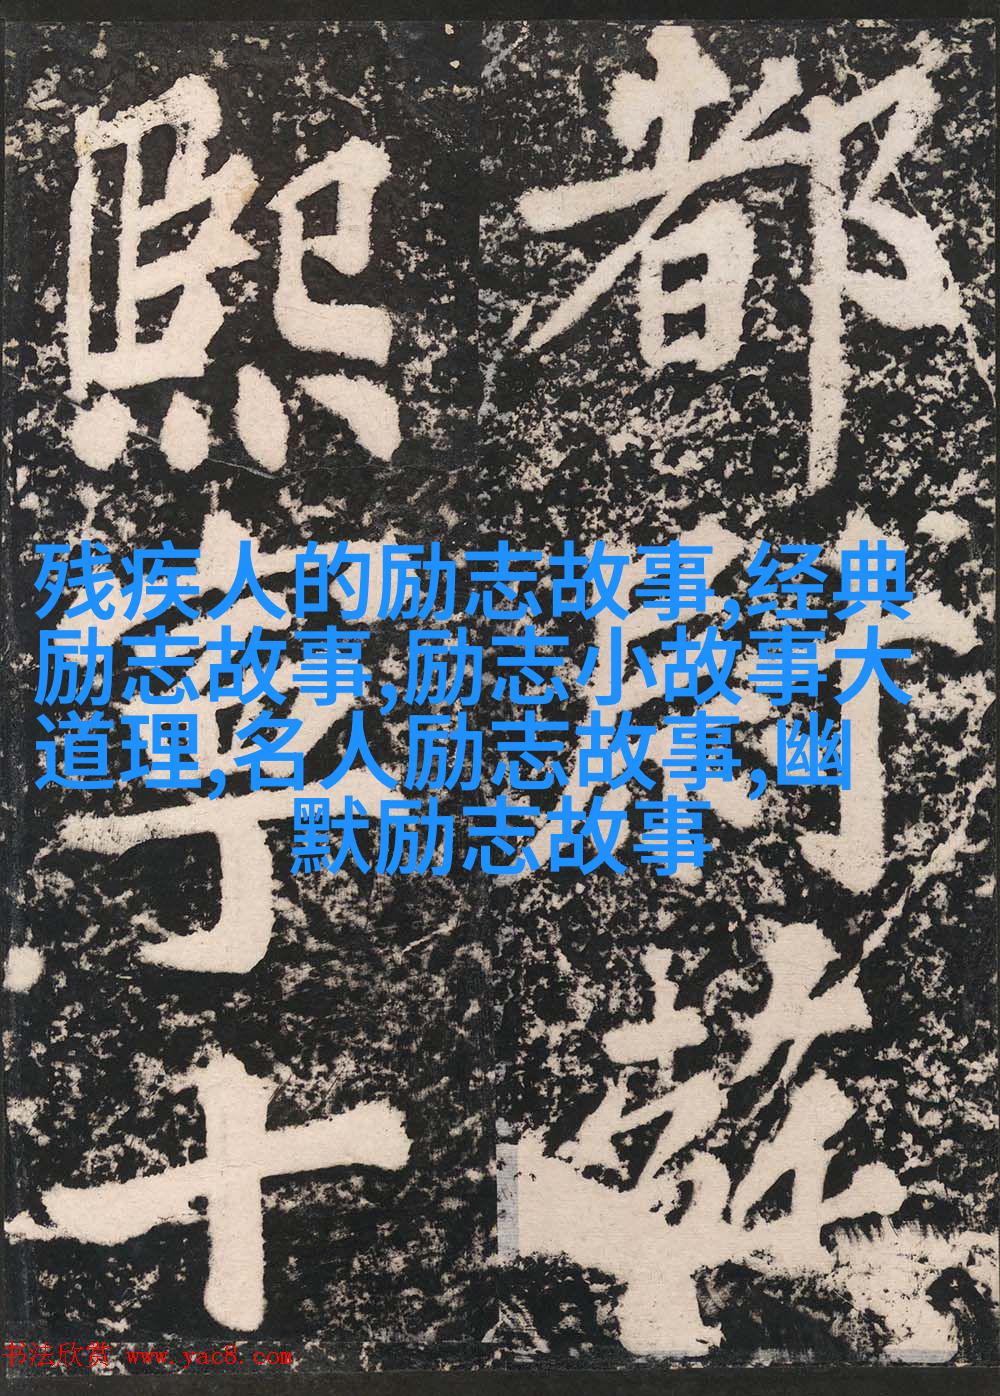 都
熙
十
残疾人的励志故事,经典
励志故事,励志小故事大
道理,名人励志故事,幽
默励志故事
书法欣赏 www.yac8.com